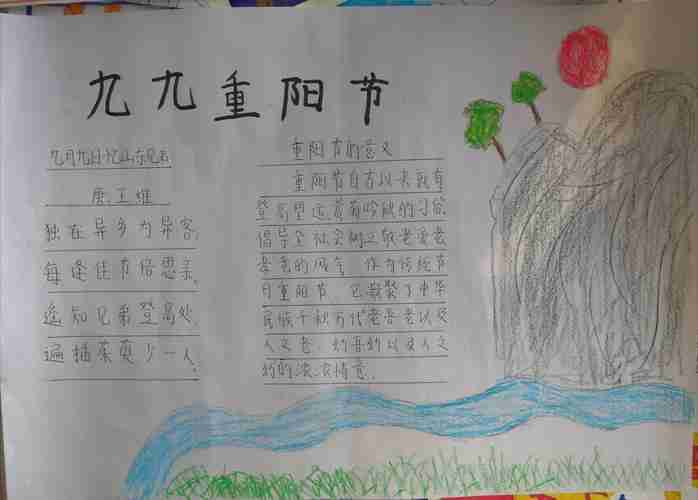 九九重阳节
九月九日忆山东兄弟
唐.王维
独在异乡为异客,
每逢佳节倍思亲,
遥知兄弟登高处,
遍插茱萸少一人,
重阳节的意义
重阳节自古以来就有
登高望远赏菊吟秋的习俗
倡导全社会树立敬老爱老
养老的风气 作为传统节
日重阳节 它凝聚了中华
民族千秋万代老吾老以及
人之老,幼吾幼以及人之
幼的浓浓情意.